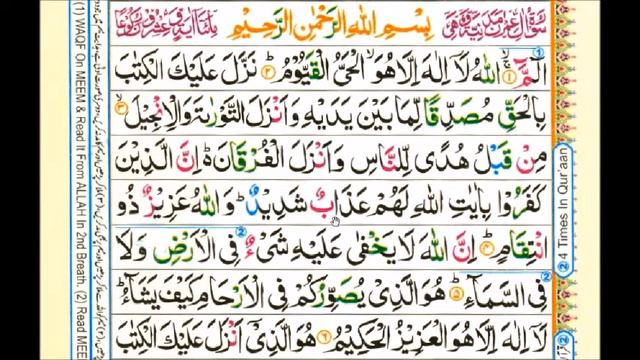 سُوْرَةُ اٰلِ عِمْرٰنَ مَدَنِيَّةٌ وَّهِيَ
بِسْمِ اللهِ الرَّحْمٰنِ الرَّحِيْمِ
الٓمَّٓ ۚ﴿۱﴾ اللهُ لَاۤ اِلٰهَ اِلَّا هُوَ ۙ الْحَىُّ الْقَيُّوْمُ ؕ﴿۲﴾ نَزَّلَ عَلَيْكَ الْكِتٰبَ
بِالْحَقِّ مُصَدِّقًا لِّمَا بَيْنَ يَدَيْهِ وَاَنْزَلَ التَّوْرٰىةَ وَالْاِنْجِيْلَ ۙ﴿۳﴾
مِنْ قَبْلُ هُدًى لِّلنَّاسِ وَاَنْزَلَ الْفُرْقَانَ ؕ اِنَّ الَّذِيْنَ
كَفَرُوْا بِاٰيٰتِ اللهِ لَهُمْ عَذَابٌ شَدِيْدٌ ؕ وَاللهُ عَزِيْزٌ ذُو
انْتِقَامٍ ؕ﴿۴﴾ اِنَّ اللهَ لَا يَخْفٰى عَلَيْهِ شَىْءٌ فِى الْاَرْضِ وَلَا
فِى السَّمَآءِ ؕ﴿۵﴾ هُوَ الَّذِىْ يُصَوِّرُكُمْ فِى الْاَرْحَامِ كَيْفَ يَشَآءُ ؕ
لَاۤ اِلٰهَ اِلَّا هُوَ الْعَزِيْزُ الْحَكِيْمُ ﴿۶﴾ هُوَ الَّذِىْۤ اَنْزَلَ عَلَيْكَ الْكِتٰبَ
(1) WAQF On MEEM & Read It From ALLAH In 2nd Breath. (2) Read MEE
② 4 Times In Qur'aan